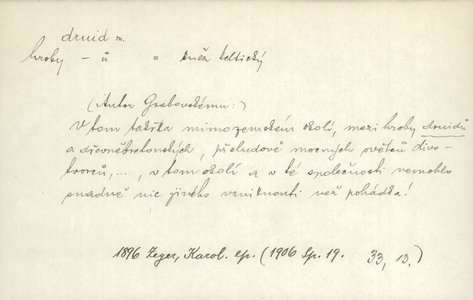 druid m.
hroby - ů = kněz keltický
(Autor Grabovskému:)
V tom takřka mimozemském okolí, mezi hroby druidů
a dřevněbretonských, přeludově mocných světců divo-
tvorců, ..., v tom okolí a v té společnosti nemohlo
snadně nic jiného vzniknouti než pohádka!
1896 Zeyer, Karol. ep. (1906 Sp. 19. 33, 13.)